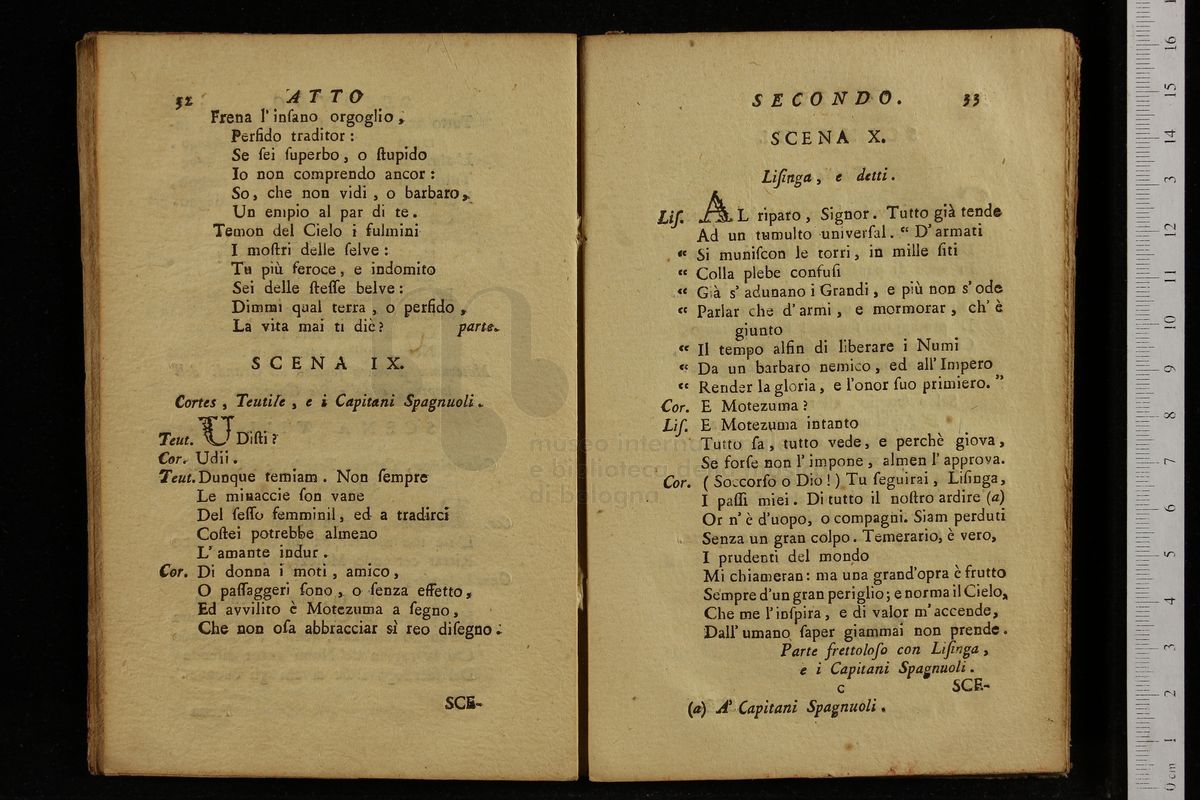 32 ATTO
Frena l'insano orgoglio,
Perfido traditor:
Se sei superbo, o stupido
Io non comprendo ancor:
So, che non vidi, o barbaro,
Un empio al par di te.
Temon del Cielo i fulmini
I mostri delle selve:
Tu più feroce, e indomito
Sei delle stesse belve:
Dimmi qual terra, o perfido,
La vita mai ti diè? parte.
SCENA IX.
Cortes, Teutile, e i Capitani Spagnuoli.
Teut. UDisti?
Cor. Udii.
Teut. Dunque temiam. Non sempre
Le minaccie son vane
Del sesso femminil, ed a tradirci
Costei potrebbe almeno
L'amante indur.
Cor. Di donna i moti, amico,
O passaggeri sono, o senza effetto,
Ed avvilito è Motezuma a segno,
Che non osa abbracciar sì reo disegno.
SCE-
SECONDO. 33
SCENA X.
Lisinga, e detti.
Lis. AL riparo, Signor. Tutto già tende
Ad un tumulto universal. “ D'armati
“ Si muniscon le torri, in mille siti
“ Colla plebe confusi
“ Già s'adunano i Grandi, e più non s'ode
“ Parlar che d'armi, e mormorar, ch'è
giunto
“ Il tempo alfin di liberare i Numi
“ Da un barbaro nemico, ed all'Impero
“ Render la gloria, e l'onor suo primiero. ”
Cor. E Motezuma?
Lis. E Motezuma intanto
Tutto sa, tutto vede, e perchè giova,
Se forse non l'impone, almen l'approva.
Cor. ( Soccorso o Dio! ) Tu seguirai, Lisinga,
I passi miei. Di tutto il nostro ardire (a)
Or n'è d'uopo, o compagni. Siam perduti
Senza un gran colpo. Temerario, è vero,
I prudenti del mondo
Mi chiameran: ma una grand'opra è frutto
Sempre d'un gran periglio; e norma il Cielo,
Che me l'inspira, e di valor m'accende,
Dall'umano saper giammai non prende.
Parte frettoloso con Lisinga,
e i Capitani Spagnuoli.
C SCE-
(a) A' Capitani Spagnuoli.
museo internazionale
e biblioteca della
di bologna